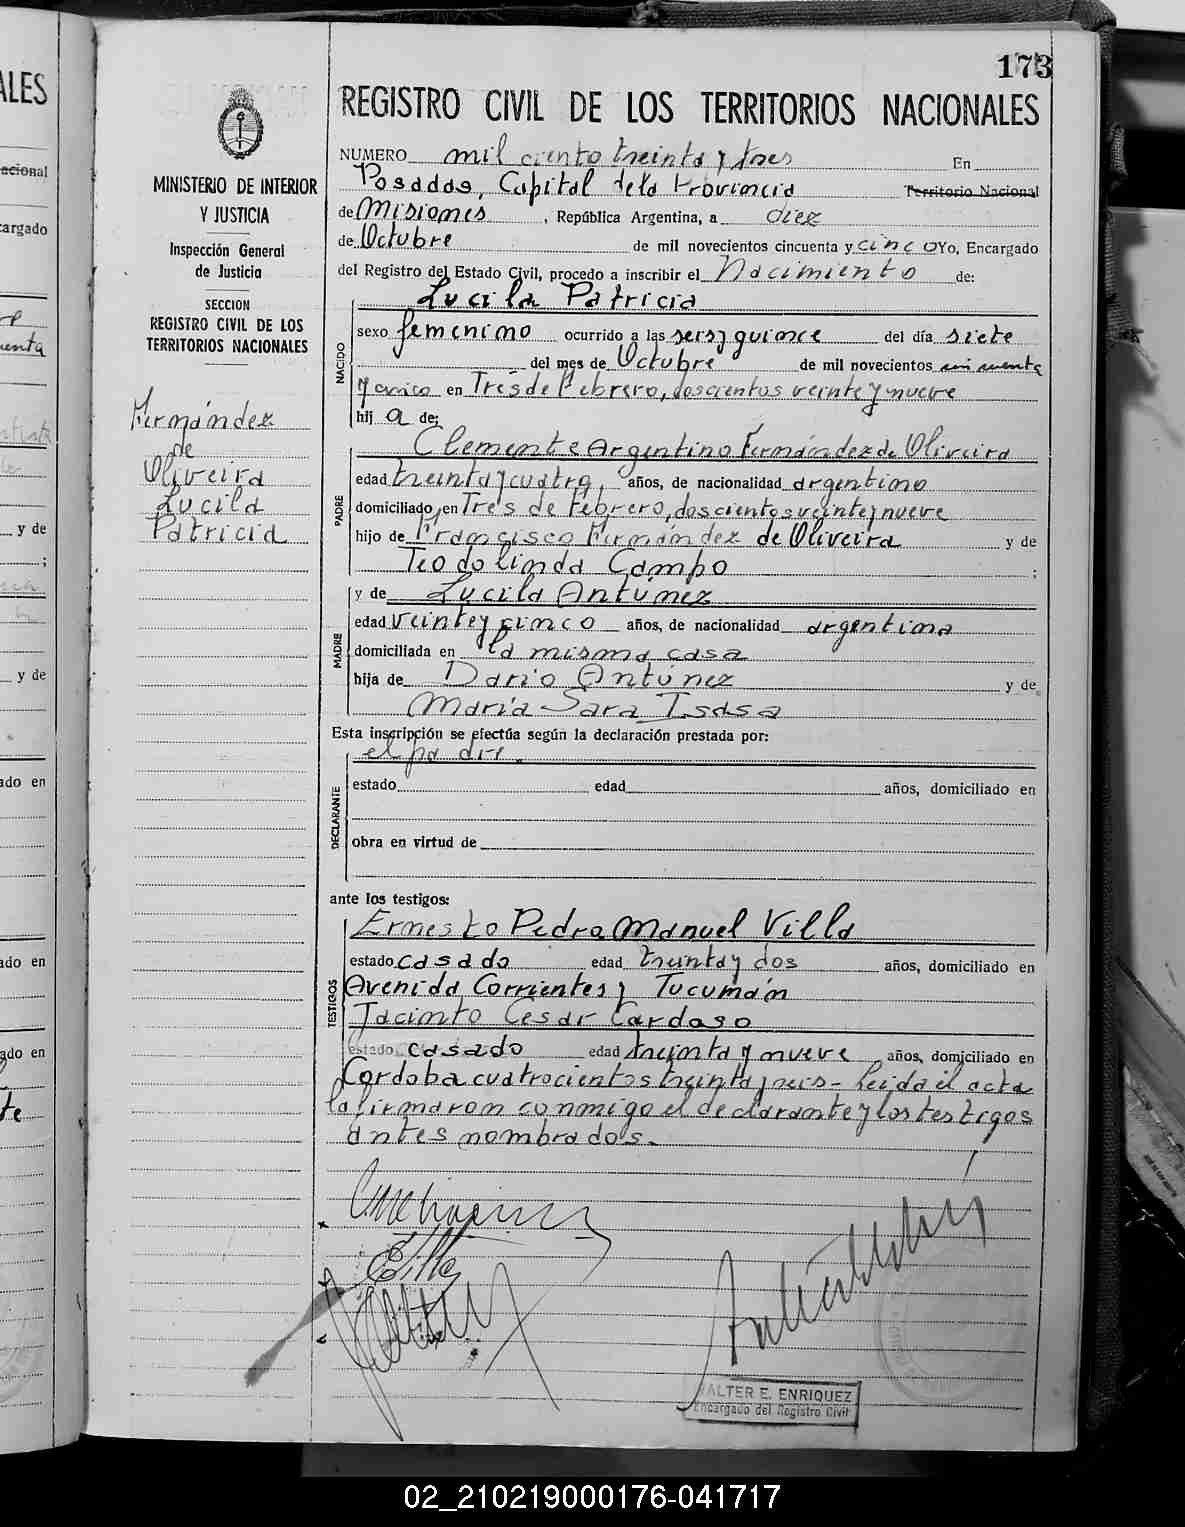 173
REGISTRO CIVIL DE LOS TERRITORIOS NACIONALES
MINISTERIO DE INTERIOR
Y JUSTICIA
Inspección General
de Justicia
SECCION
REGISTRO CIVIL DE LOS
TERRITORIOS NACIONALES
Fernández
de
Oliveira
Lucila
Patricia
NUMERO mil ciento treinta y tres En
Posadas, Capital de la Provincia Territorio Nacional
de Misiones, República Argentina, a diez
de Octubre de mil novecientos cincuenta y cinco Yo, Encargado
del Registro del Estado Civil, procedo a inscribir el Nacimiento de:
NACIDO
Lucila Patricia
sexo femenino ocurrido a las seis y quince del día siete
del mes de Octubre de mil novecientos cincuenta
y cinco en Tres de Febrero, doscientos veinte y nueve
hij a de:
PADRE
Clemente Argentino Fernández de Oliveira
edad treinta y cuatro, años, de nacionalidad argentino
domiciliado en Tres de Febrero, doscientos veinte y nueve
hijo de Francisco Fernández de Oliveira y de
Teodolinda Campo ;
MADRE
y de Lucila Antúnez
edad veinte y cinco años, de nacionalidad argentina
domiciliada en la misma casa
hija de Dario Antúnez y de
María Sara Isasa
Esta inscripción se efectúa según la declaración prestada por:
DECLARANTE
el padre.
estado edad años, domiciliado en
obra en virtud de
ante los testigos:
TESTIGOS
Ernesto Pedro Manuel Villa
estado casado edad treinta y dos años, domiciliado en
Avenida Corrientes y Tucumán
Jacinto Cesar Cardoso
estado casado edad treinta y nueve años, domiciliado en
Córdoba cuatrocientos treinta y seis - Leida el acta
la firmaron conmigo el declarante y los testigos
antes nombrados.
WALTER E. ENRIQUEZ
Encargado del Registro Civil
ALES
acional
cargado
y de
;
y de
ado en
ado en
ado en
02_210219000176-041717